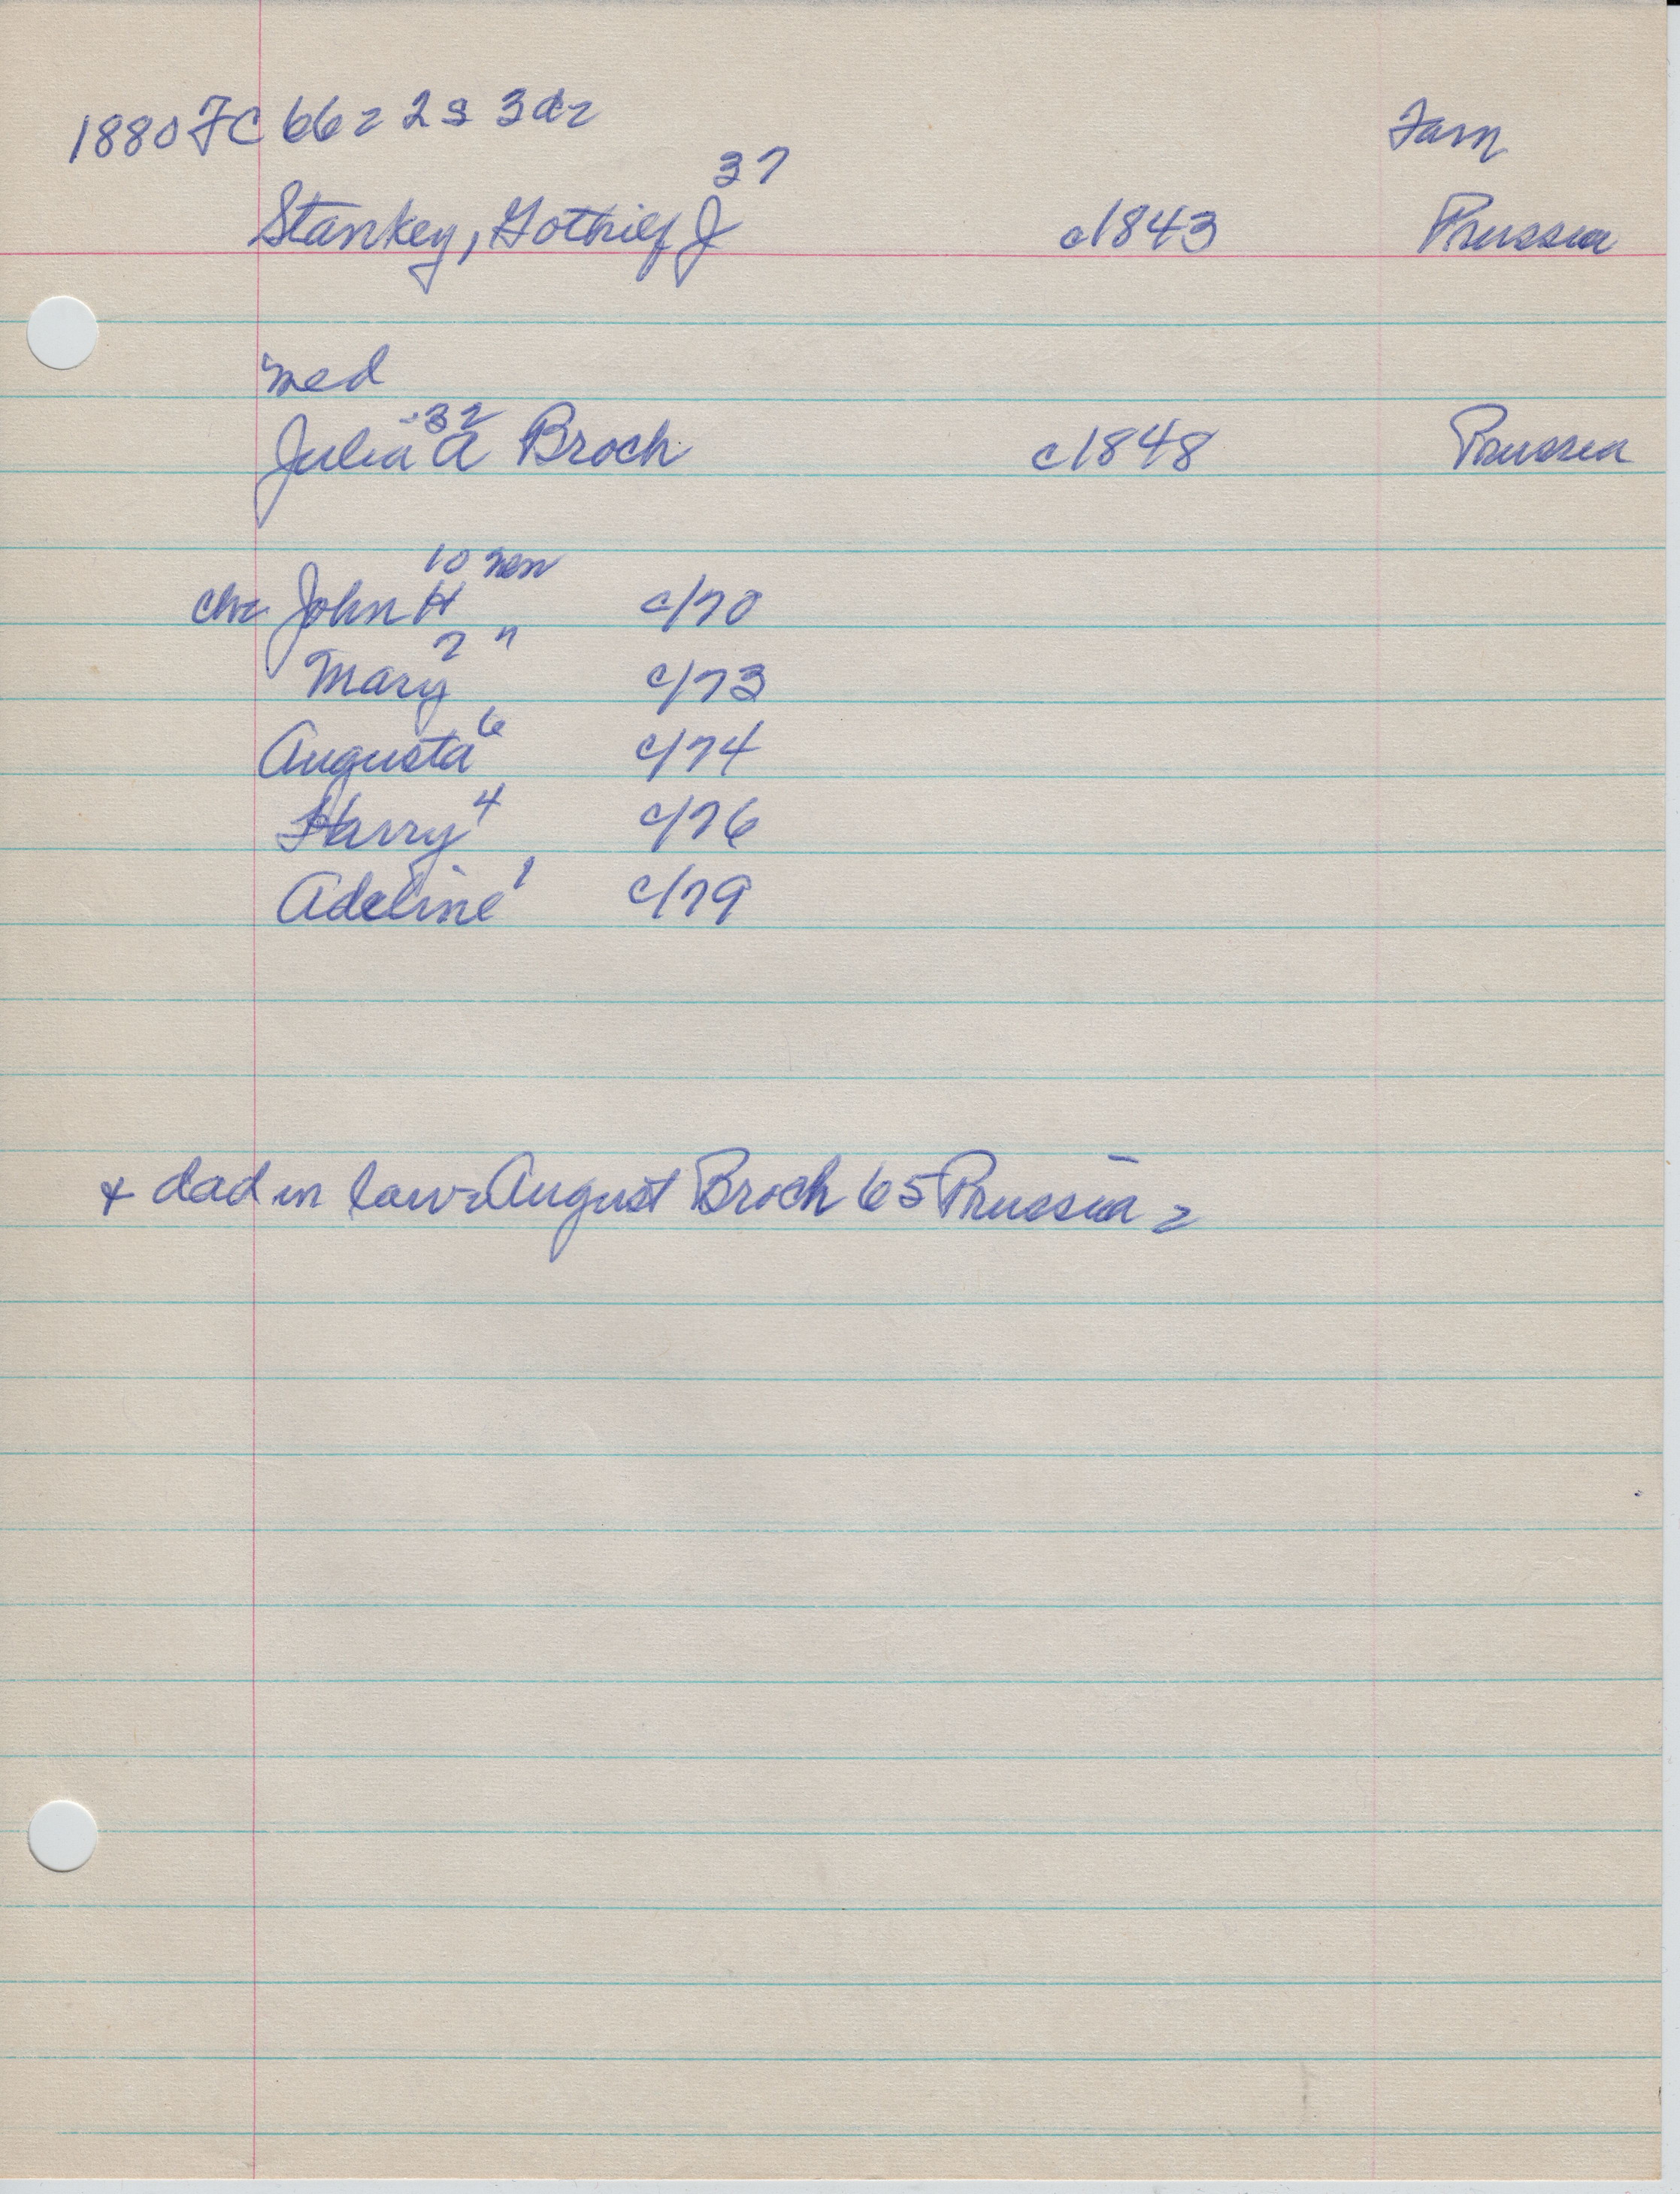 1880 FC 66 = 2s 3d = Farm
37
Stankey, Gothief J c1843 Prussia
med
32
Julia A Broch c1848 Prussia
10
ch = John H c/70
7 "
Mary c/73
Augusta 6 c/74
Harry 4 c/76
Adeline 1 c/79
+ dad in law = August Broch 65 Prussia =